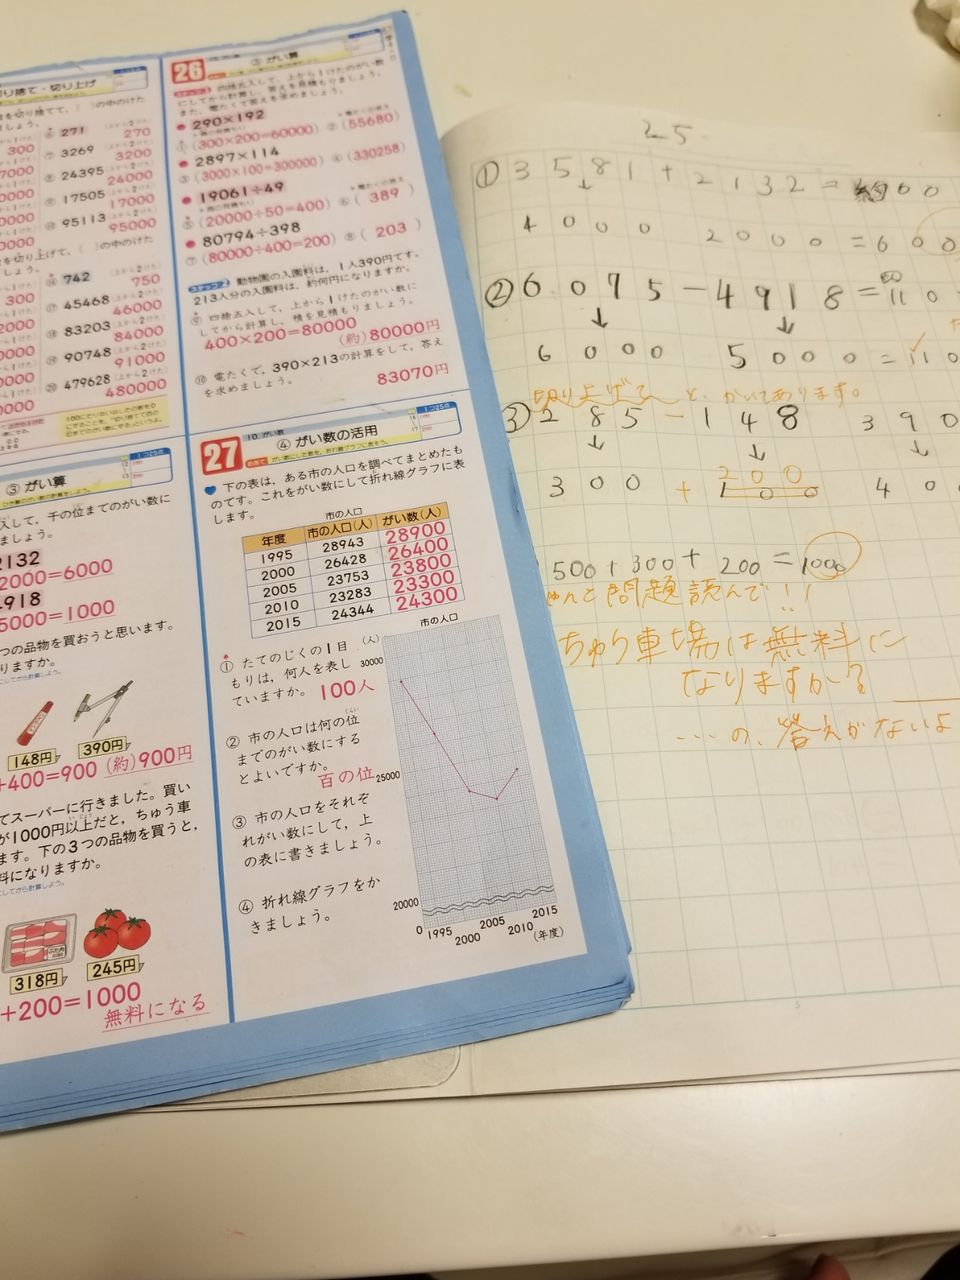 り捨て・切り上げ
を切り捨てて、( )の中のけた
ましょう。
271
270
300
3269
3200
7000
24395
24000
17505
17000
95113
95000
切り上げて、( )の中のけた
742
750
300
45468
46000
83203
84000
90748
91000
479628
48000
26
③ がい算
四捨五入して、上から1けたのがい数
にしてから計算し、答えを見積もりましょう。
また、電たくで答えを求めましょう。
290×192
① (300×200=60000) ② (55680)
2897×114
③ (3000×100=300000) ④ (330258)
19061÷49
⑤ (20000÷50=400) ⑥ (389)
80794÷398
⑦ (80000÷400=200) ⑧ (203)
ステップ2 動物園の入園料は、1人390円です。
213人分の入園料は、約何円になりますか。
⑨ 四捨五入して、上から1けたのがい数に
してから計算し、積を見積もりましょう。
400×200=80000
(約)80000円
⑩ 電たくで、390×213の計算をして、答え
を求めましょう。
83070円
③ がい算
入して、千の位までのがい数に
ましょう。
2132
2000=6000
4918
5000=1000
つの品物を買おうと思います。
りますか。
148円
390円
+400=900 (約)900円
てスーパーに行きました。買い
が1000円以上だと、ちゅう車
ます。下の3つの品物を買うと、
料になりますか。
318円
245円
+200=1000
無料になる
27
10. がい数
④ がい数の活用
下の表は、ある市の人口を調べてまとめたも
のです。これをがい数にして折れ線グラフに表
します。
市の人口
年度 市の人口(人) がい数(人)
1995 28943 28900
2000 26428 26400
2005 23753 23800
2010 23283 23300
2015 24344 24300
① たてのじくの1目
もりは、何人を表し
ていますか。 100人
② 市の人口は何の位
までのがい数にする
とよいですか。
百の位
③ 市の人口をそれぞ
れがい数にして、上
の表に書きましょう。
④ 折れ線グラフをか
きましょう。
市の人口
(人)
30000
25000
20000
0
1995
2000
2005
2010
2015
(年度)
25
① 3581+2132=約60
4000 2000=600
② 6075-4918=
6000 5000=
切り上げて と、かいてあります。
③ 285-148 390
200
300+100 40
500+300+200=1000
ゃんと問題読んで!!
ちゅう車場は無料に
なりますか?
…の、答えがないよ